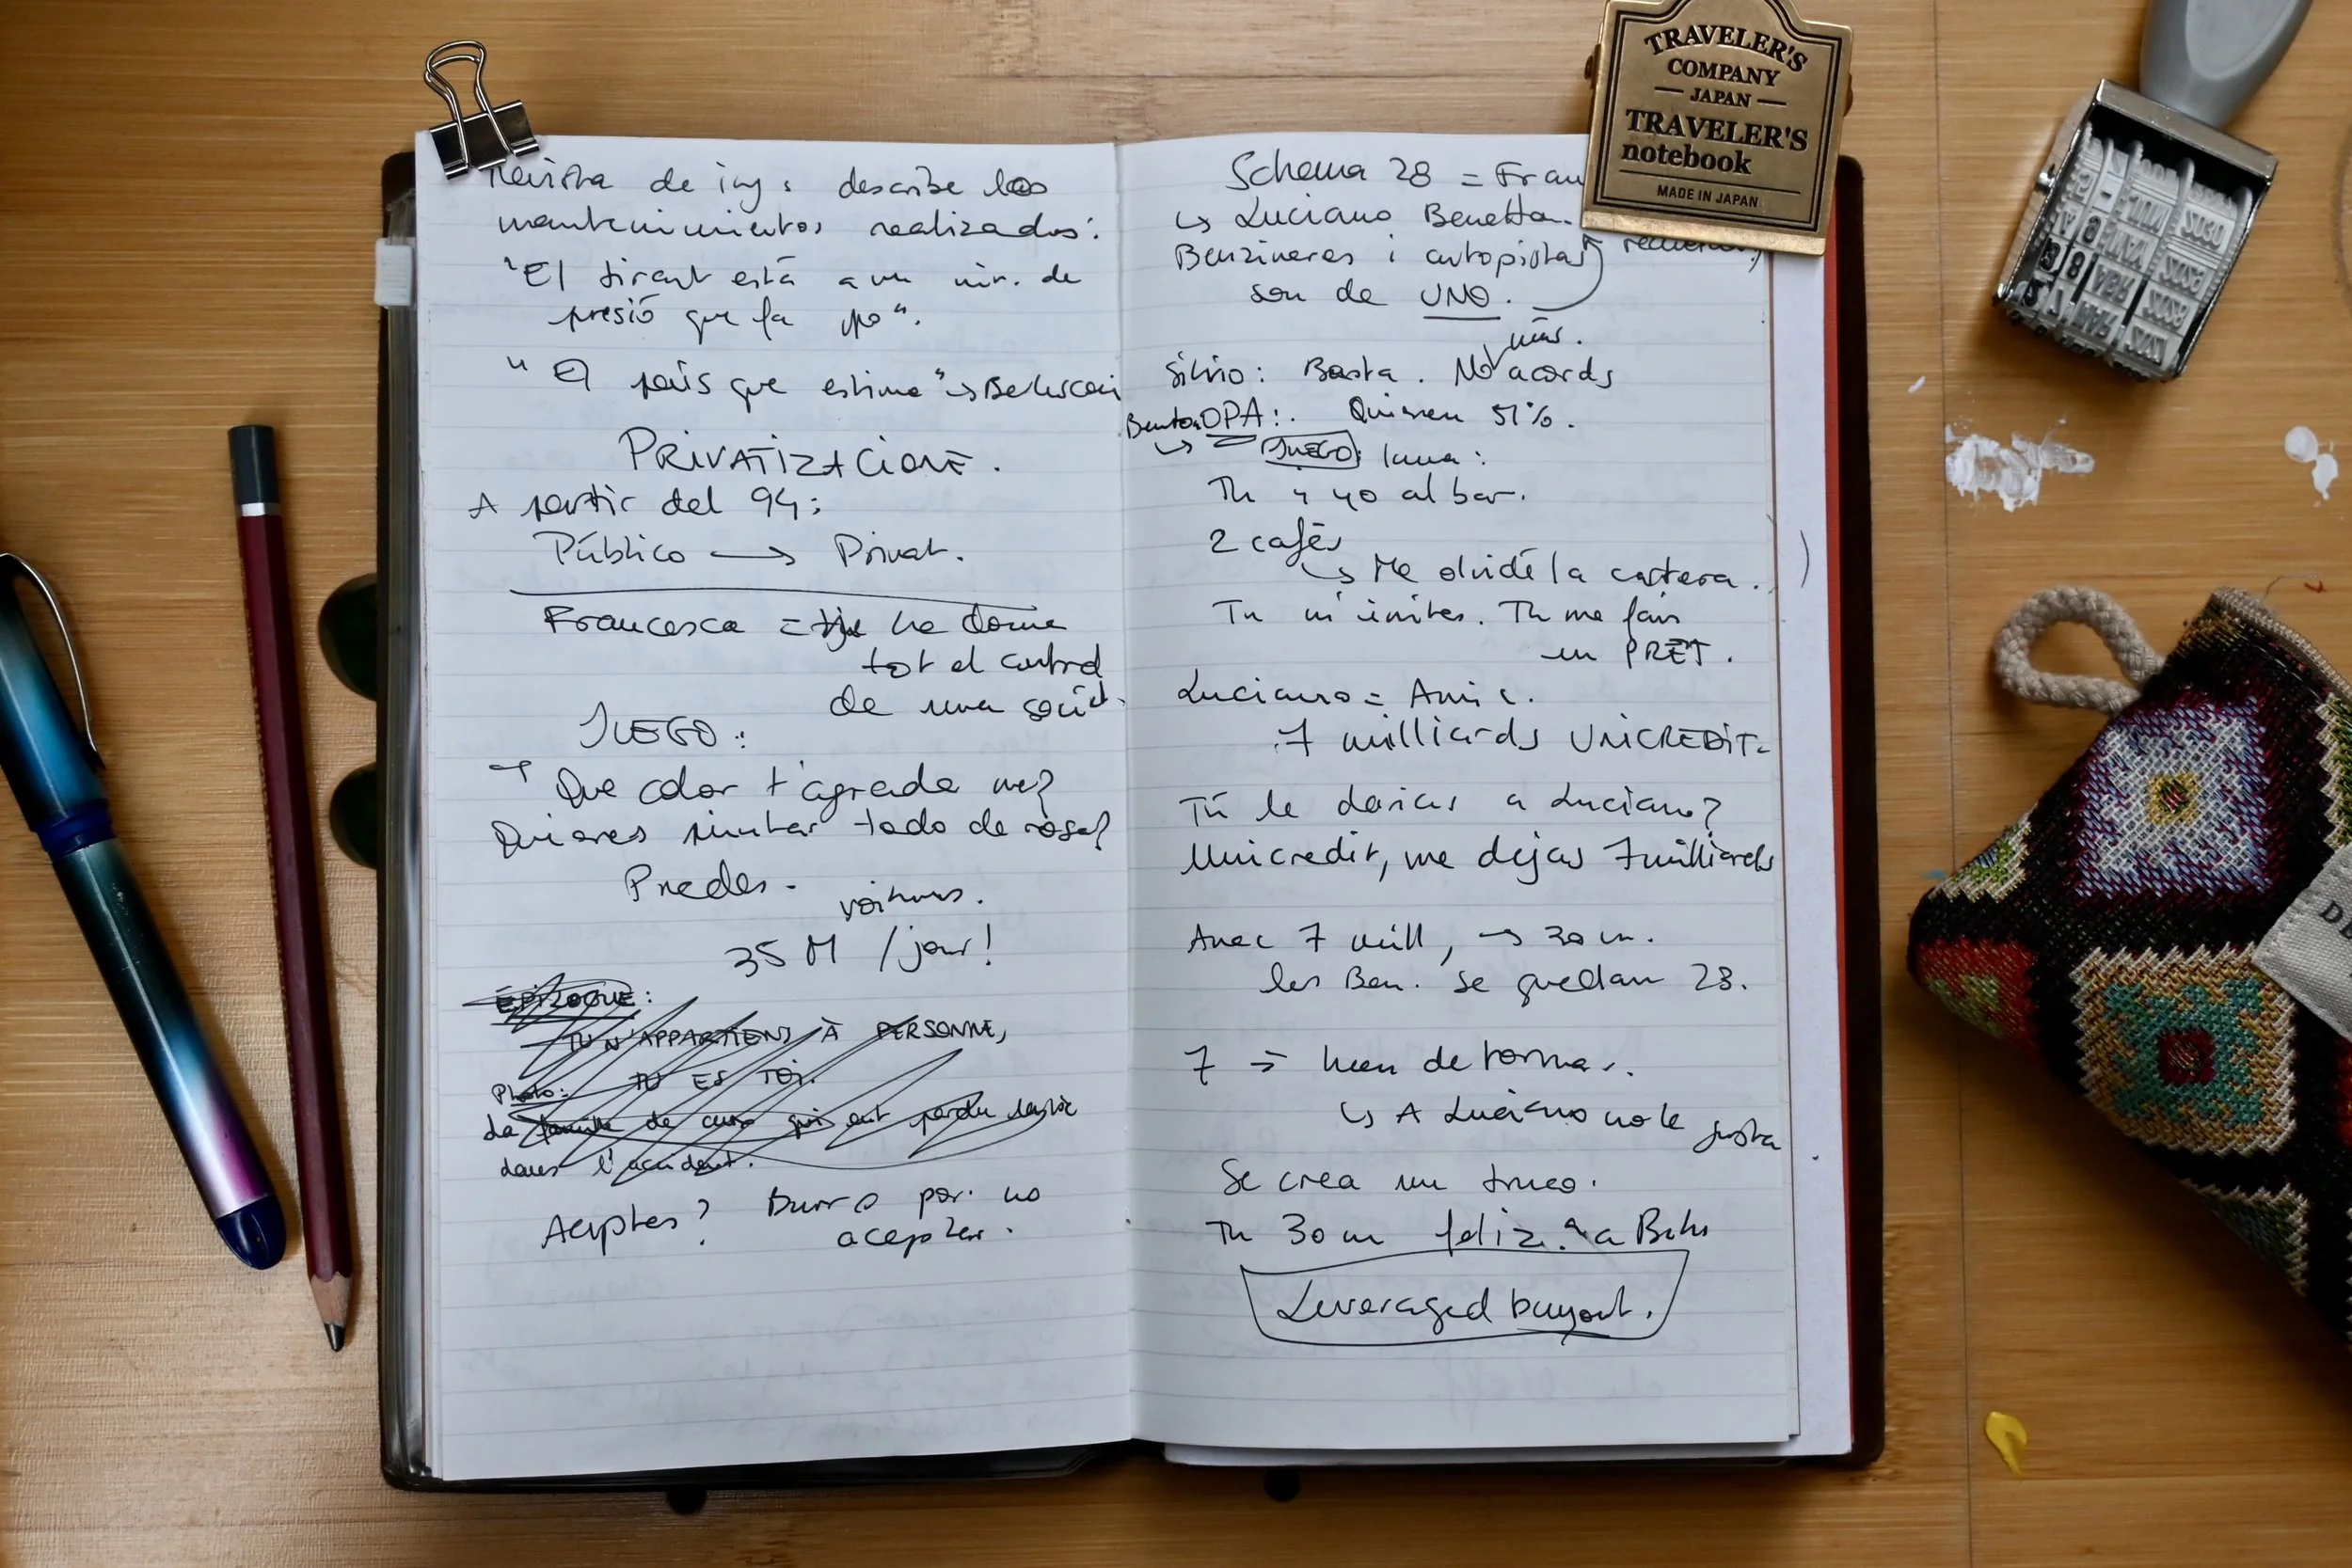 Revista de ing: describe los
mantenimientos realizados:
"El tirant está a un de
presió que fa
"El país que estima" → Berlusconi
PRIVATIZACIONE.
A partir del 94:
Público → Privat.
Francesca = he done
tot el control
de una
JUEGO:
Que color t'agrada
Quieres pintar todo de rosa?
Puedes.
voitures.
35 M /jour!
ÉPILOGUE:
TU N'APPARTIENS À PERSONNE,
TU ES TOI.
Photo:
La famille de qui ont perdu
dans l'accident.
Aceptas? Burro por no
aceptar.
Schema 28 = Fran
↳ Luciano Benetton.
Benzineres i autopistas
son de UNO.
más.
Silvio: Basta. No acords
OPA: Quieren 51%.
↳ JUEGO:
Tu y yo al bar.
2 cafés
↳ Me olvidé la cartera.
Tu m'invites. Tu me fais
un PRÊT.
Luciano = Amic.
7 milliards UNICREDIT.
Tú le darias a Luciano?
Unicredit, me dejas 7 milliards
Avec 7 mill, → 30 m.
les Ben. se quedan 28.
7 → han de tornar.
↳ A Luciano no le gusta
Se crea un truco.
Tu 30 m feliz.
Leveraged buyout.
TRAVELER'S
COMPANY
JAPAN
TRAVELER'S
notebook
MADE IN JAPAN